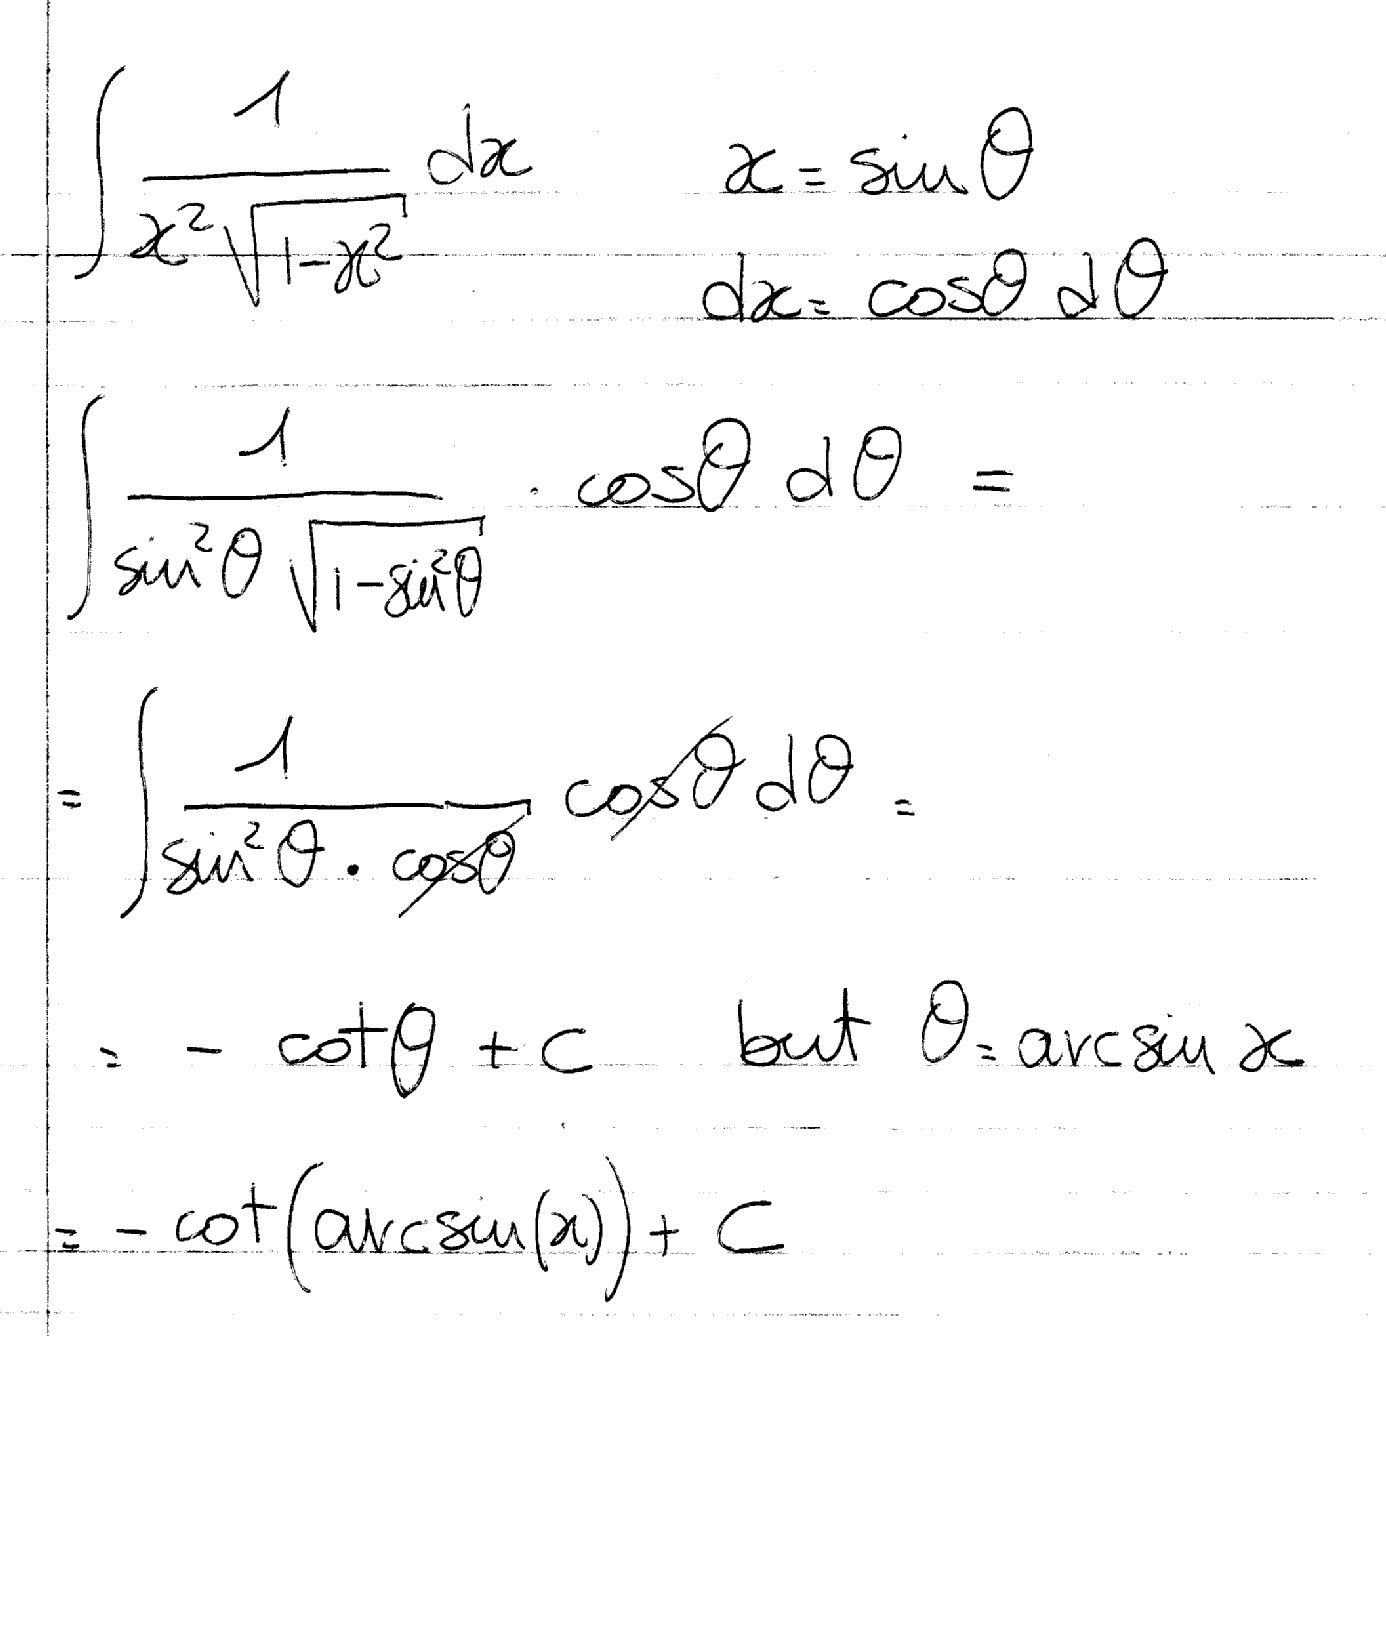 ∫ 1/(x²√(1-x²)) dx   x = sin θ
dx = cosθ dθ
∫ 1/(sin²θ √(1-sin²θ)) · cosθ dθ =
= ∫ 1/(sin²θ · cosθ) cosθ dθ =
= - cotθ + C   but θ = arcsin x
= - cot(arcsin(x)) + C